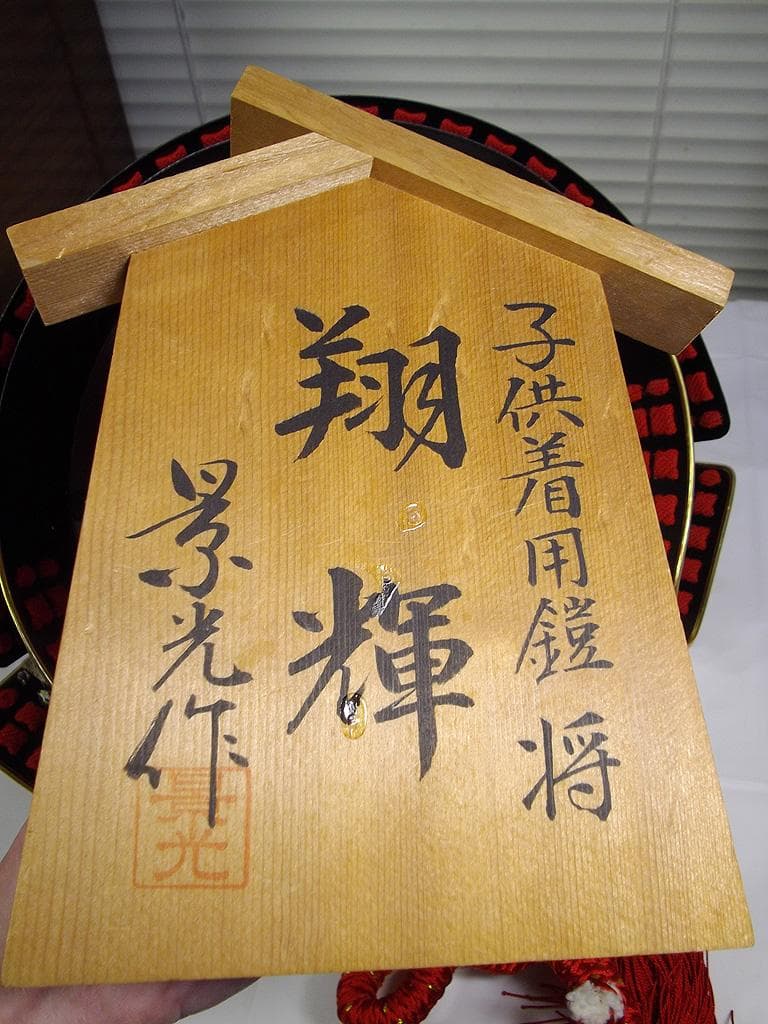 子供着用鎧 将
翔輝
景光作
景光